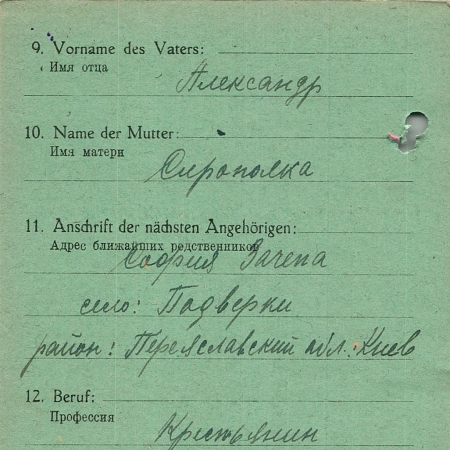 9. Vorname des Vaters:
Имя отца
Александр
10. Name der Mutter:
Имя матери
11. Anschrift der nächsten Angehörigen:
Адрес ближайших редственников
София Зачепа
село: Подверки
район: Переяславский обл. Киев
12. Beruf:
Профессия
Крестьянин